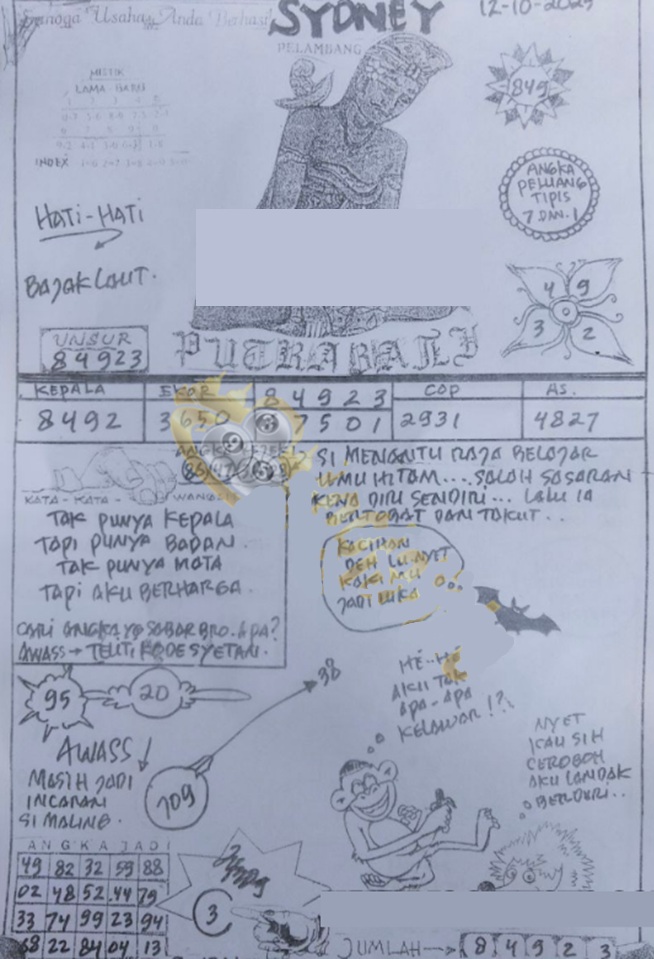 Semoga Usaha Anda Berhasil
SYDNEY
12-10-2025
PELAMBANG
MISTIK
LAMA - BARU
INDEX
1849
ANGKA
PELUANG
TIPIS
7 DAN. 1
HATI-HATI
BAJAK LAUT.
4 9
3 2
UNSUR
84923
PUTRA BALI
KEPALA EKOR 8 4 9 2 3 COP AS.
8492 3650 67501 2931 4827
KATA - KATA - WANGSIT
TAK PUNYA KEPALA
TAPI PUNYA BADAN.
TAK PUNYA MATA
TAPI AKU BERHARGA.
CARI ANGKA YG SABAR BRO. APA?
AWASS → TELITI KODE SYETAN.
SI MENANTU RAJA BELAJAR
ILMU HITAM.... SALAH SASARAN
KENA DIRI SENDIRI... LALU IA
BERTOBAT DAN TAKUT..
KACIHAN
DEH LU NYET
KAKI MU
JADI LUKA
HE-HE
AKU TAK
APA-APA
KELAWAR!?
NYET
KAU SIH
CEROBOH
AKU LANDAK
BERDURI..
95
20
38
AWASS!
MASIH JADI
INCARAN
SI MALING.
709
ANGKA JADI
49 82 32 59 88
02 48 52 44 79
33 74 99 23 94
68 22 84 04 13
3
JUMLAH → 8 4 9 2 3